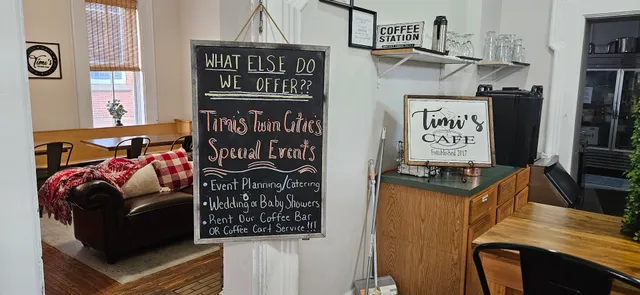 WHAT ELSE DO
WE OFFER??
Timi's Twin Citie's
Special Events
• Event Planning/Catering
• Wedding or Baby Showers
• Rent Our Coffee Bar
OR Coffee Cart Service!!!
COFFEE
STATION
Timi's
CAFE
Established 2017
Timi's